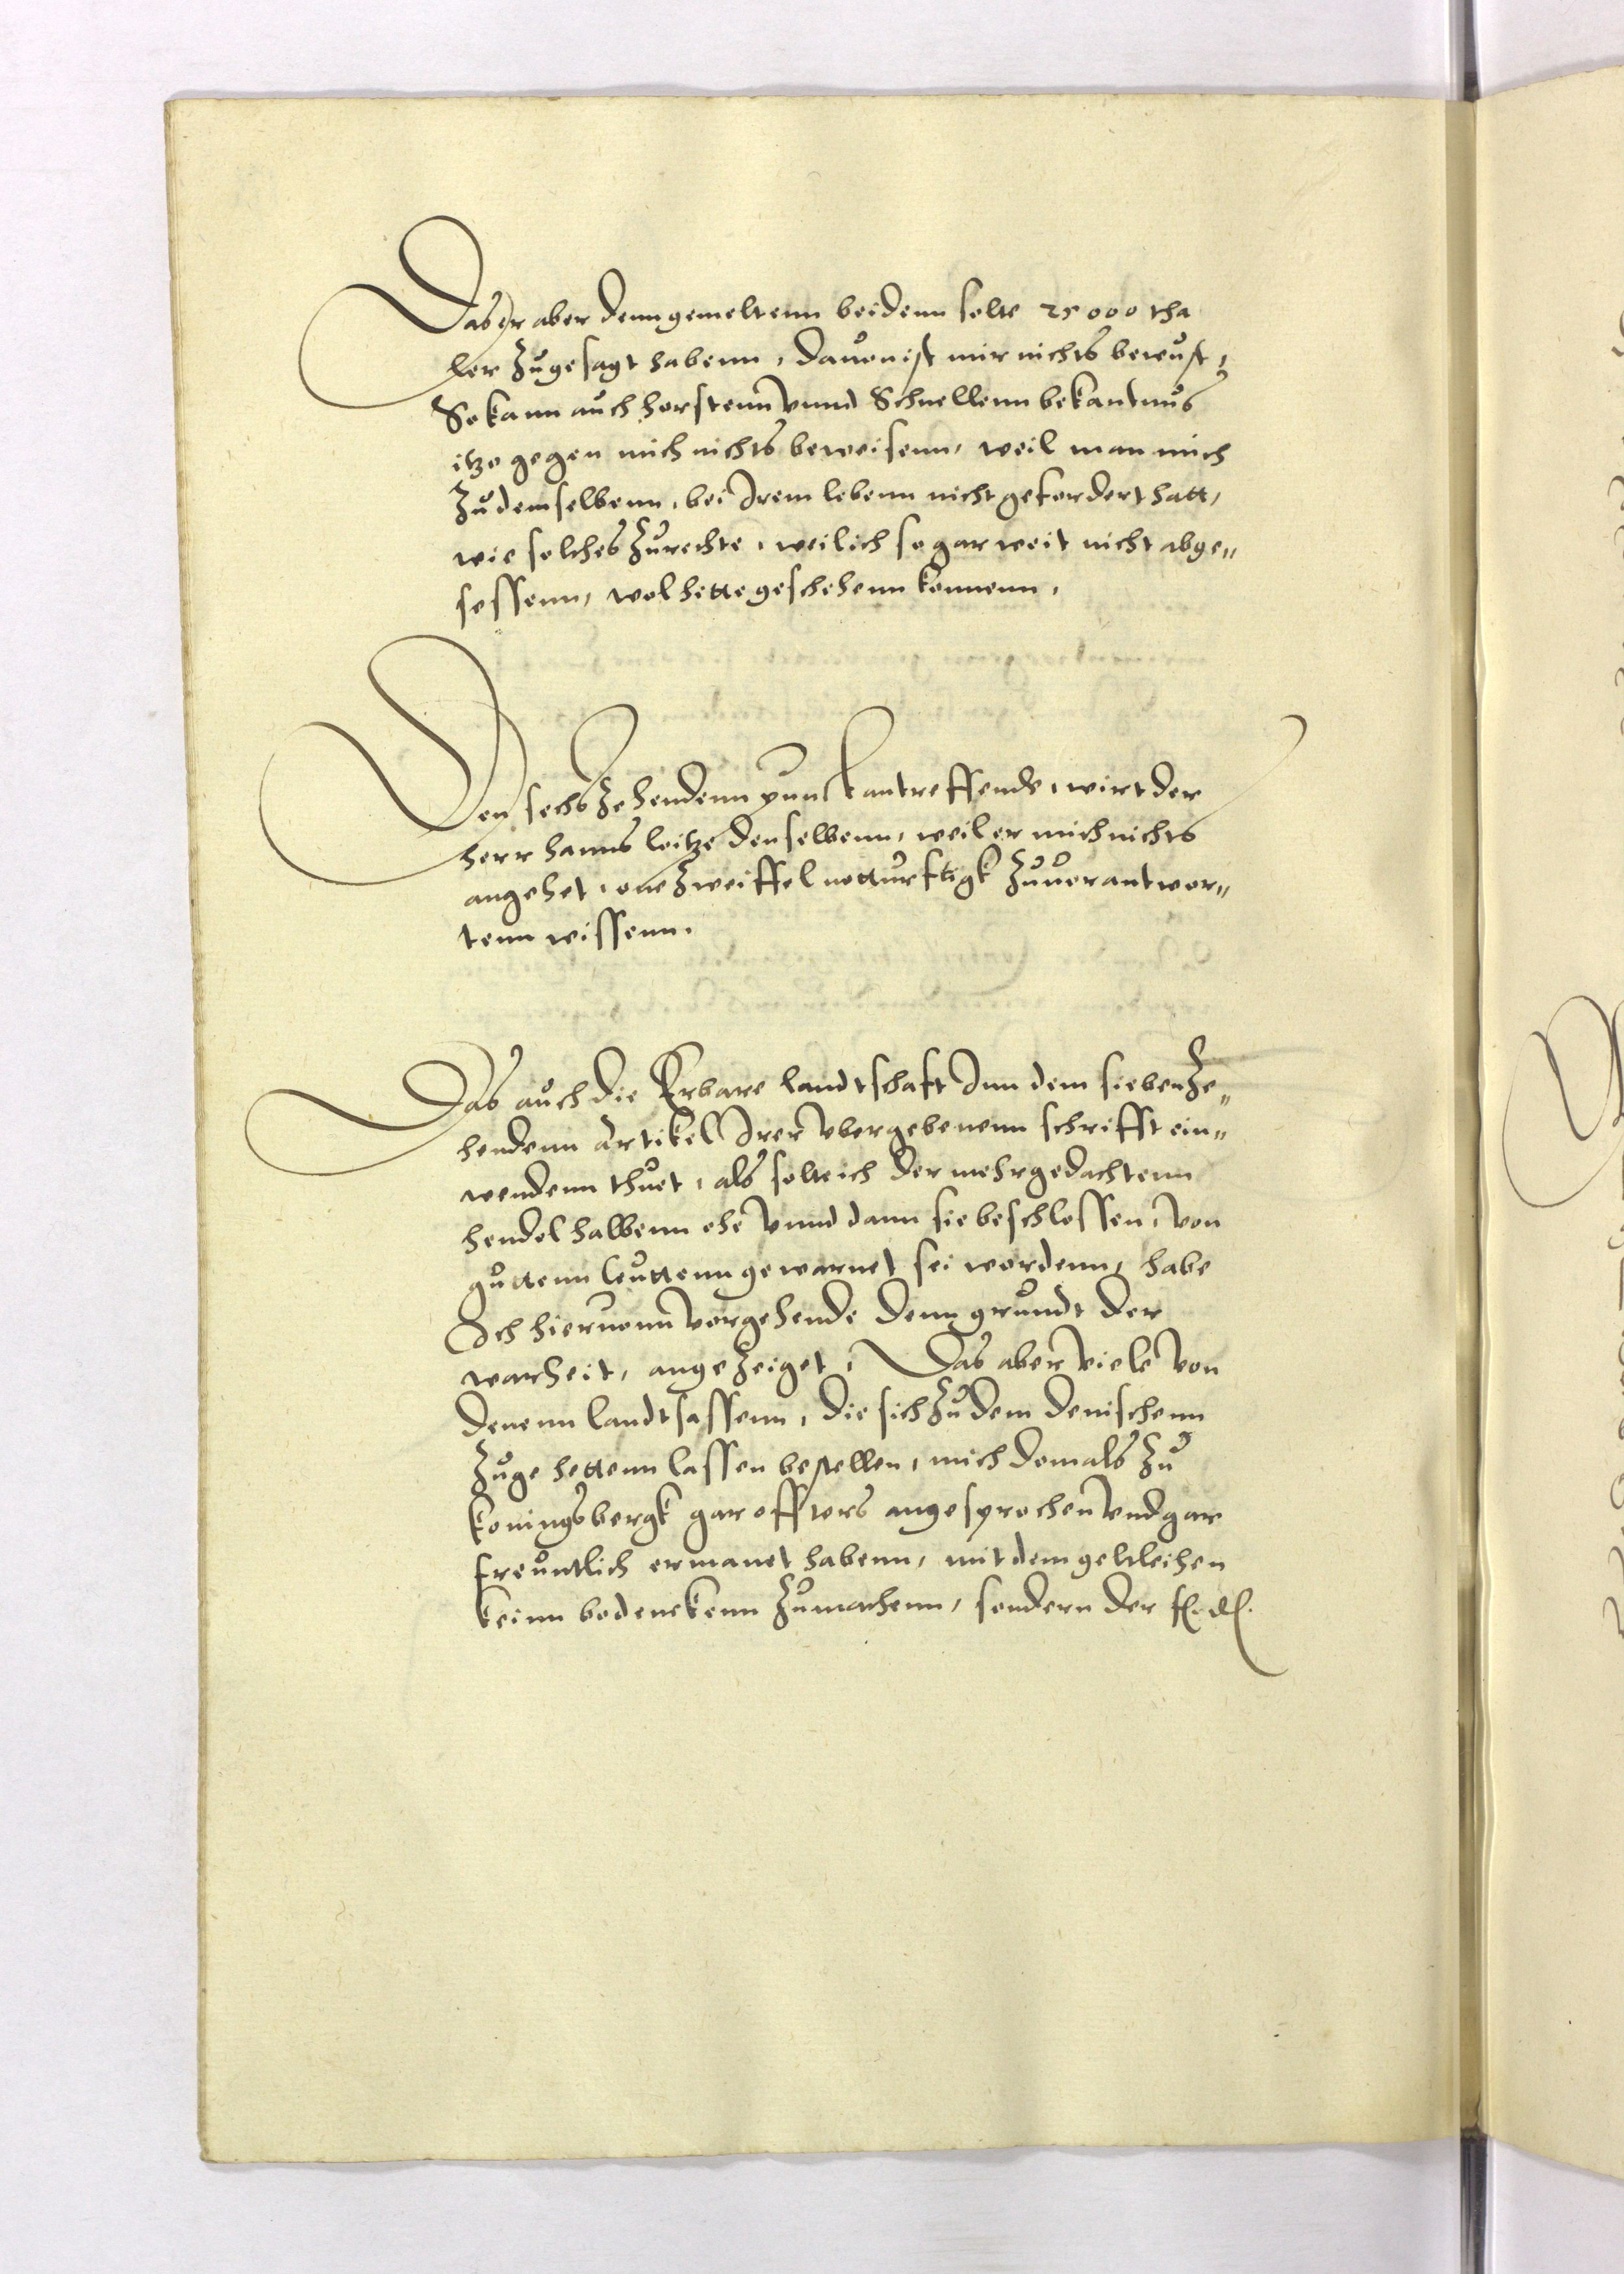 Das er aber denn gemeltenn beidenn solte 25000 tha
ler zugesagt habenn, dauon ist mir nichts bewust,
So kann auch Horstenn vnnd Schnellenn bekantnus
itzo gegen mich nichts beweisenn, weil man mich
zu demselbenn, bei Irem lebenn nicht gefordert hatt,
wie solches zurechte, weil ich so gar weit nicht abge„
sessenn, wol hette geschehenn konnenn,
Den sechszehendenn punkt antreffende, wirt der
herr hanns leitze denselbenn, weil er mich nichts
angehet, one zweiffel notturftigk zuuorantwor„
tenn wissenn.
Das auch die Erbare landtschaft Inn dem siebenze„
hendenn artikel Irer vbergebenenn schrifft ein„
wendenn thuet, als solte ich der mehrgedachtenn
hendel halbenn ehe vnnd dann sie beschlossen, von
guttenn leuttenn gewarnet sei wordenn, habe
Ich hieruonn vorgehende denn grundt der
warheit, angezeiget, Das aber viele von
denenn landtsassenn, die sich zu dem denischenn
zuge hettenn lassen bestellen, mich domals zu
konigsbergk gar offters angesprochen vnd gar
freuntlich ermanet habenn, mit dem geltleihen
keinn bedenckenn zumachenn, sondern der f. d.